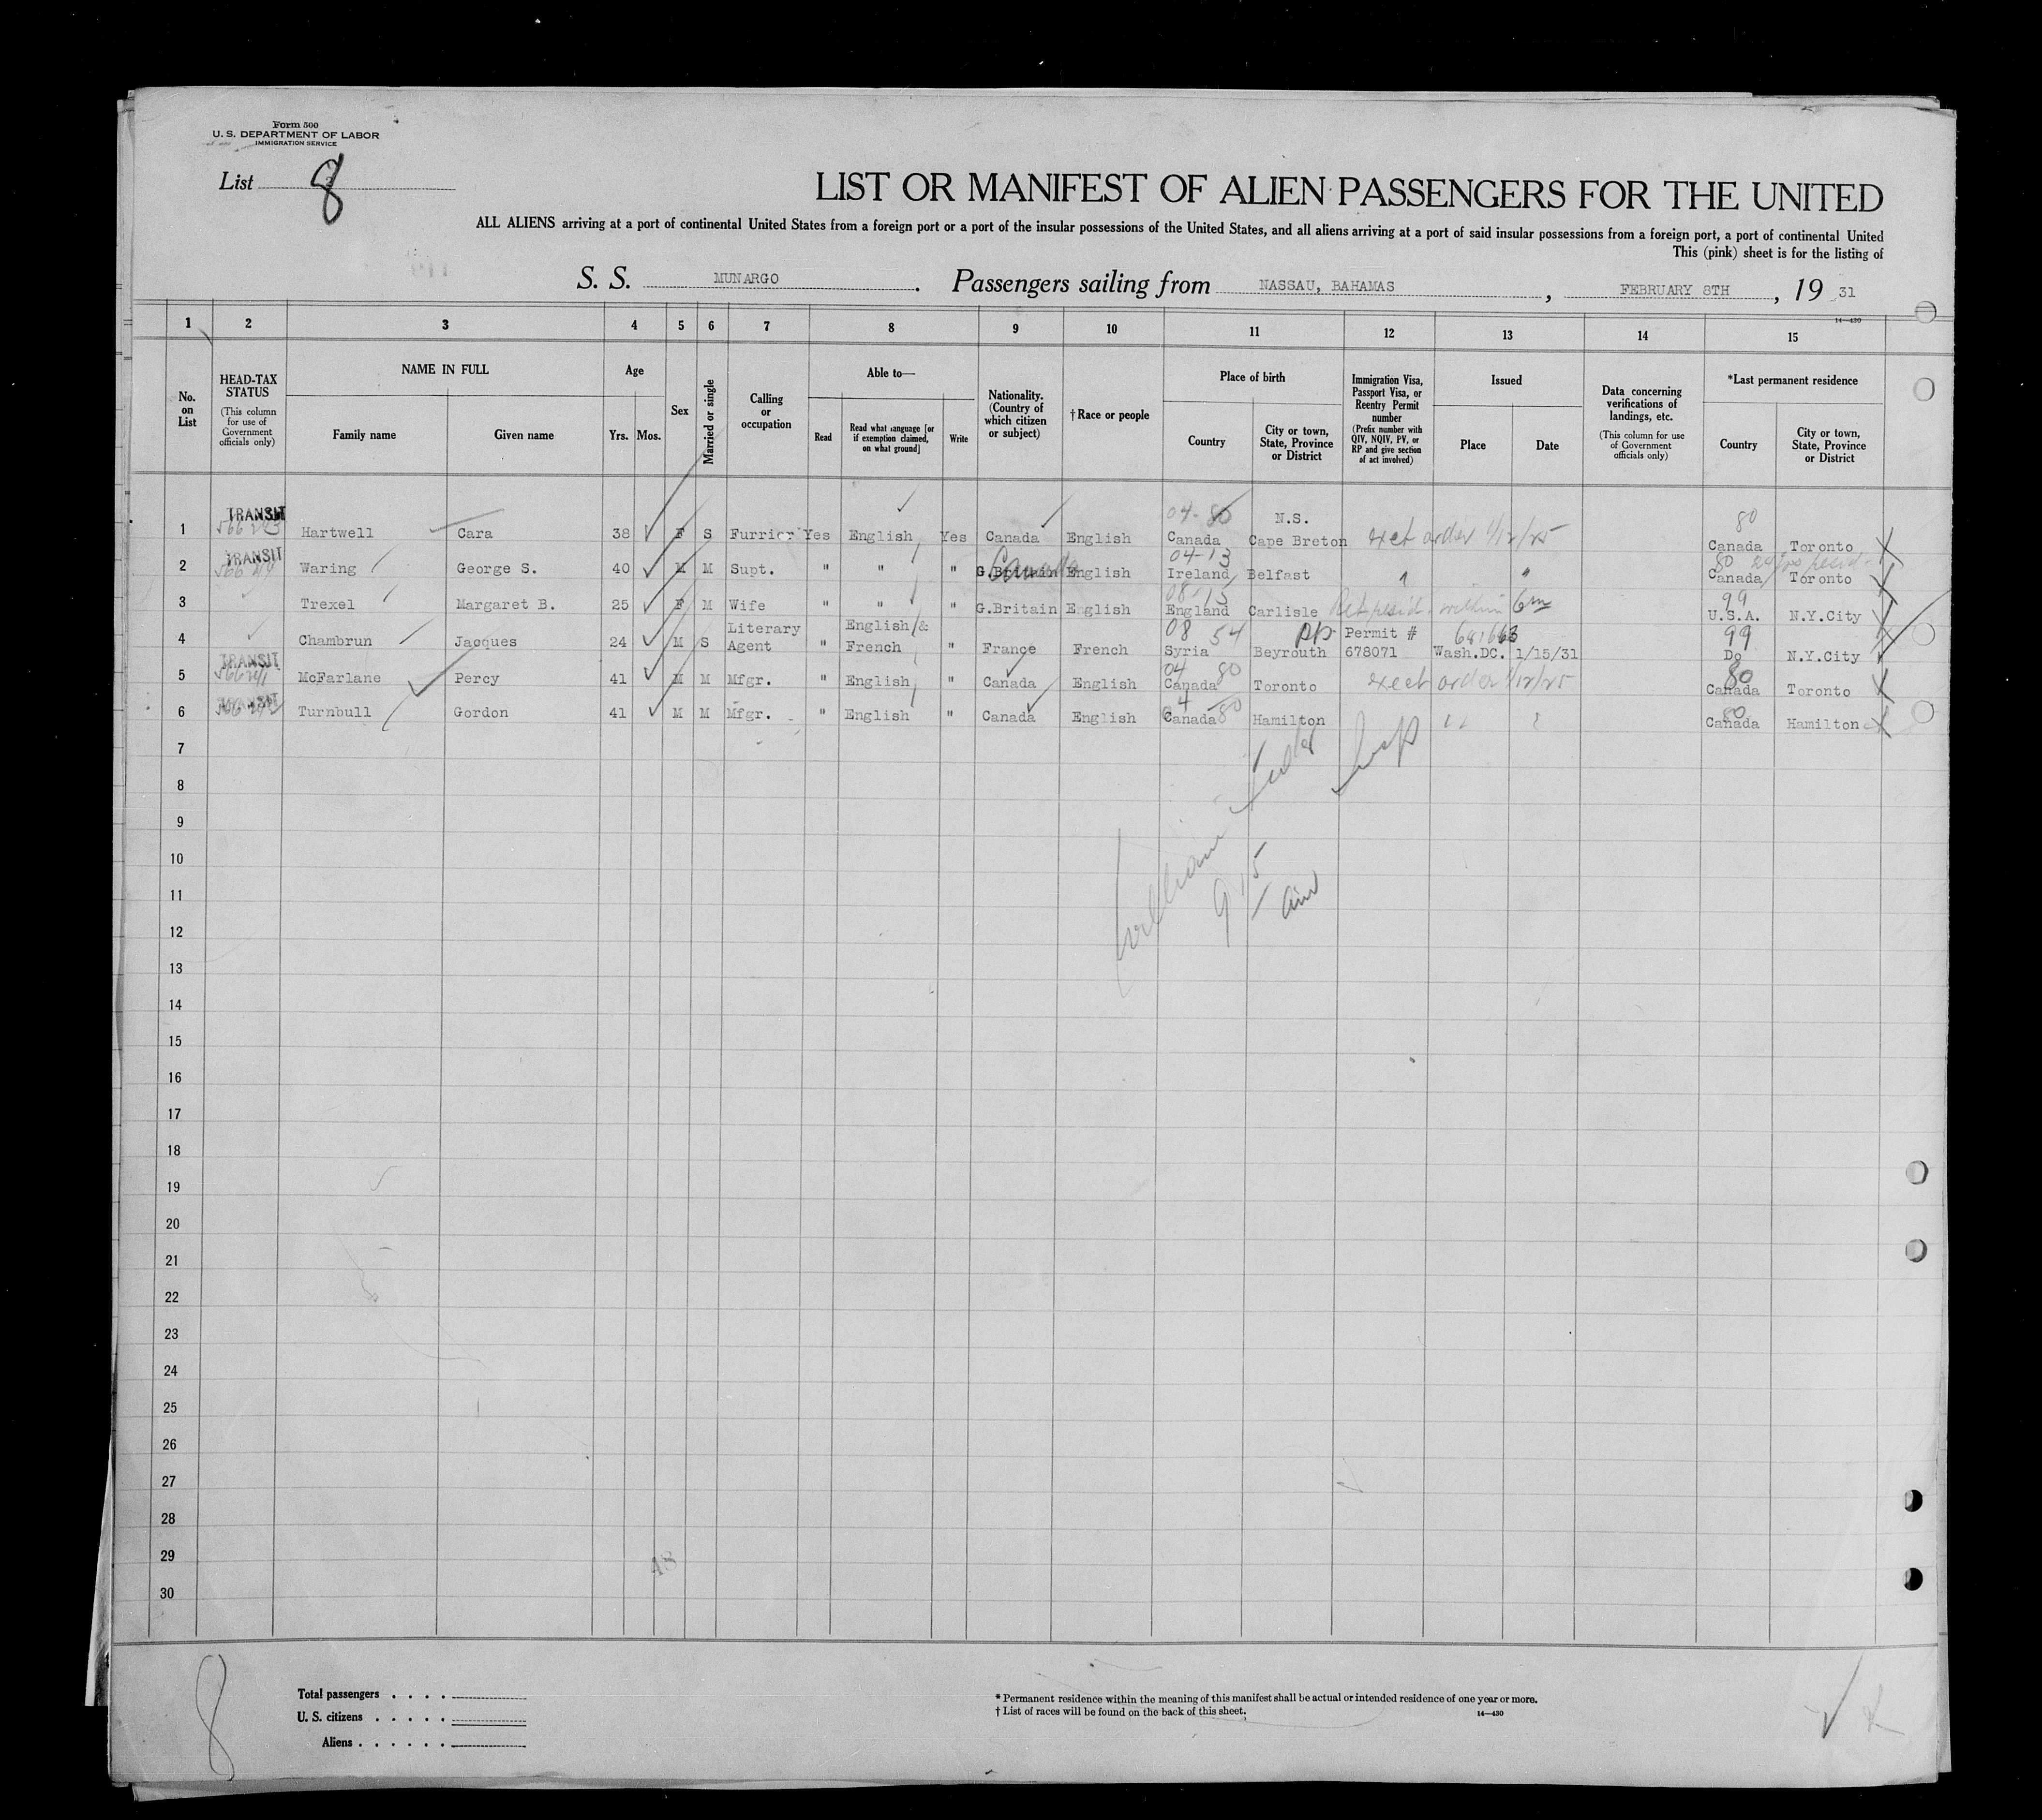 Form 500
U. S. DEPARTMENT OF LABOR
IMMIGRATION SERVICE
List 8
LIST OR MANIFEST OF ALIEN PASSENGERS FOR THE UNITED
ALL ALIENS arriving at a port of continental United States from a foreign port or a port of the insular possessions of the United States, and all aliens arriving at a port of said insular possessions from a foreign port, a port of continental United
This (pink) sheet is for the listing of
S. S. MUNARGO. Passengers sailing from NASSAU, BAHAMAS, FEBRUARY 8TH, 19 31
14—430
1 2 3 4 5 6 7 8 9 10 11 12 13 14 15
No. on List
HEAD-TAX STATUS
(This column for use of Government officials only)
NAME IN FULL
Family name
Given name
Age
Yrs.
Mos.
Sex
Married or single
Calling or occupation
Able to—
Read
Read what language [or if exemption claimed, on what ground]
Write
Nationality. (Country of which citizen or subject)
† Race or people
Place of birth
Country
City or town, State, Province or District
Immigration Visa, Passport Visa, or Reentry Permit number
(Prefix number with QIV, NQIV, PV, or RP and give section of act involved)
Issued
Place
Date
Data concerning verifications of landings, etc.
(This column for use of Government officials only)
*Last permanent residence
Country
City or town, State, Province or District
TRANSIT 04-80 N.S. 80
1 Hartwell Cara 38 F S Furrier Yes English Yes Canada English Canada Cape Breton exec order 1/12/25 Canada Toronto
TRANSIT Canada 04-13 80
2 Waring George S. 40 M M Supt. " " " G.Britain English Ireland Belfast Canada Toronto
08-15 99
3 Trexel Margaret B. 25 F M Wife " " " G.Britain English England Carlisle Ret resid. within 6 ms U.S.A. N.Y.City
Literary English & 08 54 Permit # 99
4 Chambrun Jacques 24 M S Agent " French " France French Syria Beyrouth 678071 Wash.DC. 1/15/31 Do N.Y.City
TRANSIT 04 80 80
5 McFarlane Percy 41 M M Mfgr. " English " Canada English Canada Toronto exec order 1/12/25 Canada Toronto
TRANSIT 80 80
6 Turnbull Gordon 41 M M Mfgr. " English " Canada English Canada Hamilton " Canada Hamilton
7
8
9
10
11
12
13
14
15
16
17
18
19
20
21
22
23
24
25
26
27
28
29
30
William
915
8
Total passengers
U. S. citizens
Aliens
* Permanent residence within the meaning of this manifest shall be actual or intended residence of one year or more.
† List of races will be found on the back of this sheet.
14—430